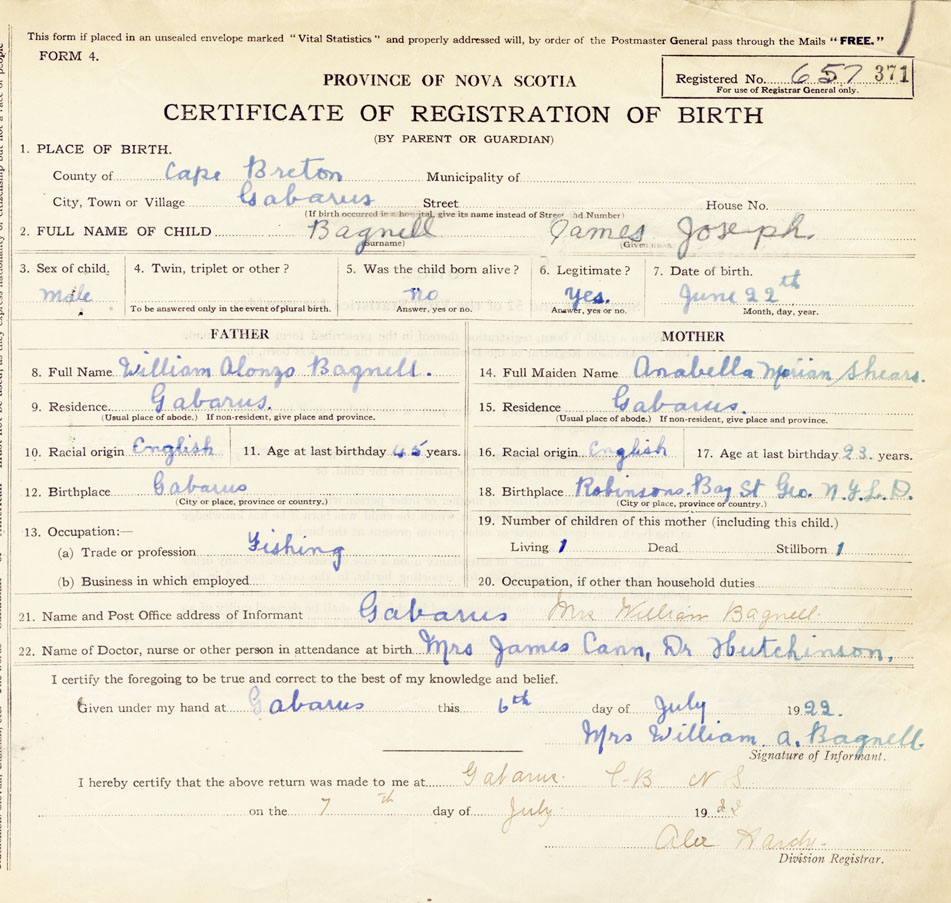 This form if placed in an unsealed envelope marked "Vital Statistics" and properly addressed will, by order of the Postmaster General pass through the Mails "FREE."
FORM 4.
Registered No. 657 371
For use of Registrar General only.
PROVINCE OF NOVA SCOTIA
CERTIFICATE OF REGISTRATION OF BIRTH
(BY PARENT OR GUARDIAN)
1. PLACE OF BIRTH.
County of Cape Breton Municipality of
City, Town or Village Gabarus Street House No.
(If birth occurred in a hospital, give its name instead of Street and Number)
2. FULL NAME OF CHILD Bagnell James Joseph.
(Surname) (Given
3. Sex of child. 4. Twin, triplet or other? 5. Was the child born alive? 6. Legitimate? 7. Date of birth.
Male no Yes. June 22th
To be answered only in the event of plural birth. Answer, yes or no. Answer, yes or no. Month, day, year.
FATHER MOTHER
8. Full Name William Alonzo Bagnell. 14. Full Maiden Name Anabella Mirian Shears.
9. Residence Gabarus. 15. Residence Gabarus.
(Usual place of abode.) If non-resident, give place and province. (Usual place of abode.) If non-resident, give place and province.
10. Racial origin English 11. Age at last birthday 45 years. 16. Racial origin English 17. Age at last birthday 23. years.
12. Birthplace Gabarus 18. Birthplace Robinsons. Bay St Geo. N.F.L.D.
(City or place, province or country.) (City or place, province or country.)
13. Occupation:— 19. Number of children of this mother (including this child.)
(a) Trade or profession Fishing Living 1 Dead Stillborn 1
(b) Business in which employed 20. Occupation, if other than household duties
21. Name and Post Office address of Informant Gabarus Mrs William Bagnell.
22. Name of Doctor, nurse or other person in attendance at birth Mrs James Cann, Dr Hutchinson.
I certify the foregoing to be true and correct to the best of my knowledge and belief.
Given under my hand at Gabarus this 6th day of July 1922.
Mrs William. A. Bagnell.
Signature of Informant.
I hereby certify that the above return was made to me at Gabarus. C-B N S
on the 7th day of July 1922
Alex Hardy.
Division Registrar.